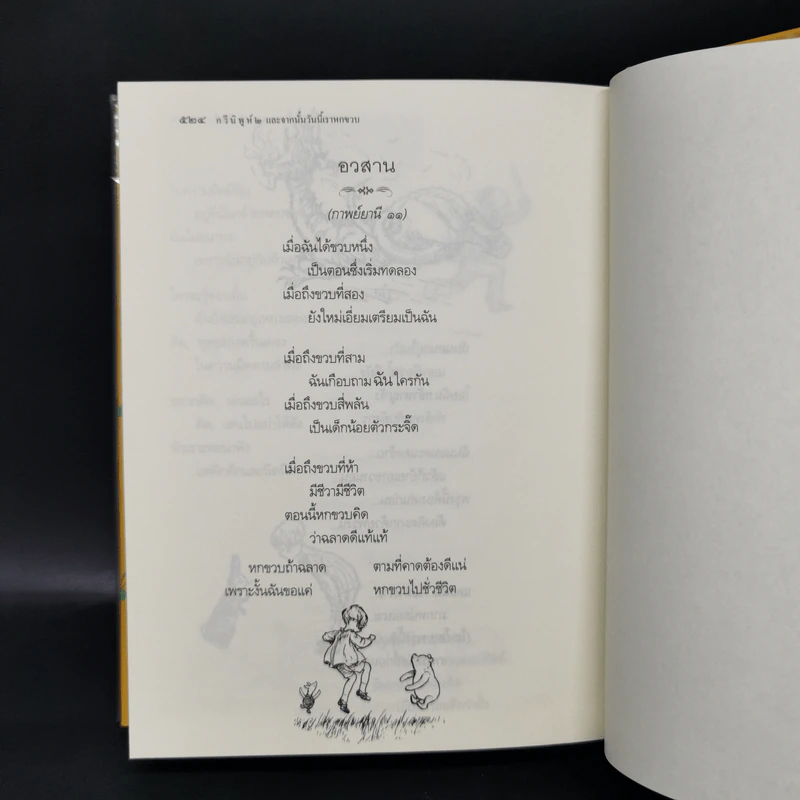 ๕๒๔ กวีนิพูห์๒ และจากนั้นวันนี้เราหกขวบ
อวสาน
(กาพย์ยานี ๑๑)
เมื่อฉันได้ขวบหนึ่ง
เป็นตอนซึ่งเริ่มทดลอง
เมื่อถึงขวบที่สอง
ยังใหม่เอี่ยมเตรียมเป็นฉัน
เมื่อถึงขวบที่สาม
ฉันเกือบถามฉันใครกัน
เมื่อถึงขวบสี่พลัน
เป็นเด็กน้อยตัวกระจิ๊ด
เมื่อถึงขวบที่ห้า
มีชีวามีชีวิต
ตอนนี้หกขวบคิด
ว่าฉลาดดีแท้แท้
หกขวบถ้าฉลาด ตามที่คาดต้องดีแน่
เพราะงั้นฉันขอแค่ หกขวบไปชั่วชีวิต